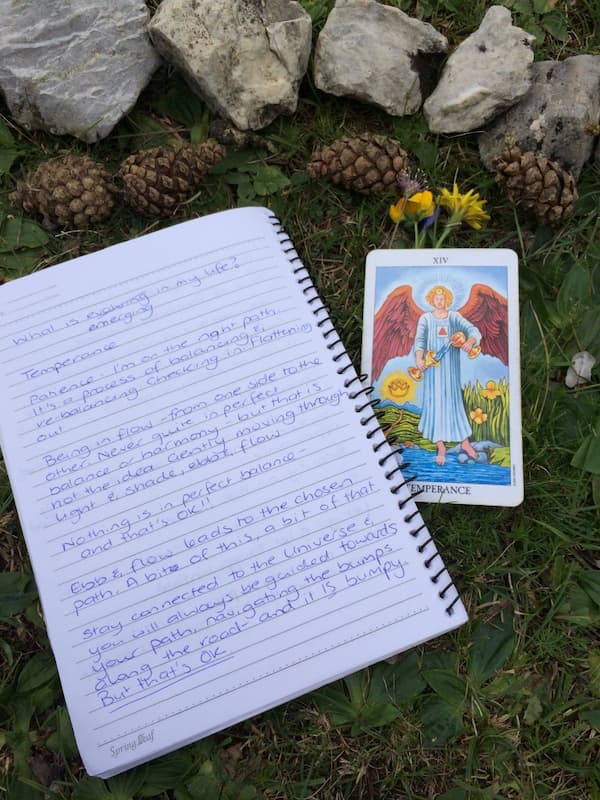 What is evolving in my life?
emerging
Temperance
Patience - I'm on the right path.
It's a process of balancing &
re-balancing. Checking in. Flattening
out
Being in flow - from one side to the
other. Never quite in perfect
balance or harmony - but that is
not the idea. Gently moving through
light & shade, ebb & flow
Nothing is in perfect balance -
and that's OK!!
Ebb & flow leads to the chosen
path. A bit of this, a bit of that
Stay connected to the Universe &
you will always be guided towards
your path, navigating the bumps
along the road - and it IS bumpy
But that's OK
Spring Leaf
XIV
TEMPERANCE